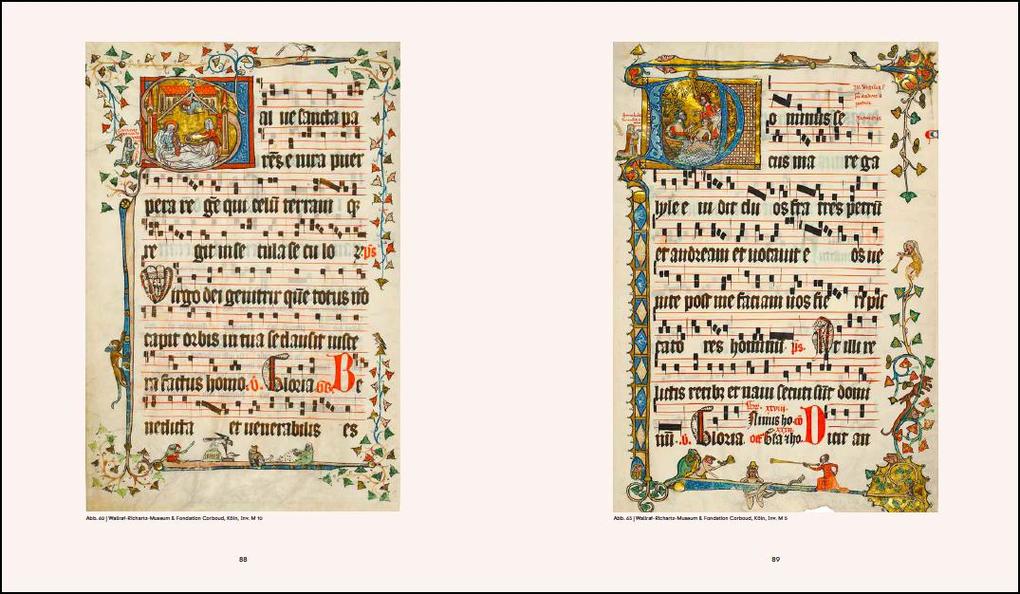 al ue sancta pa
rēs e nira puer
pera re ge qui celū terram q;
re git in se cula se cu lo r. ps
Virgo dei genitrix quē totus nō
capit orbis in tua se clausit uisce
ra factus homo. v. Gloria Be
nedicta et uenerabilis es
Abb. 60 | Wallraf-Richartz-Museum & Fondation Corboud, Köln, Inv. M 10
88
Do minus se
cus ma re ga
lyle e ui dit du os fra tres petrū
et andream et uocauit e os ue
nite post me faciam uos fie ri pis
cato res hominū. ps. At illi re
lictis retibz et naui secuti sūt domi
nū. v. Gloria. Nimis ho Dicit an
Abb. 65 | Wallraf-Richartz-Museum & Fondation Corboud, Köln, Inv. M 5
89